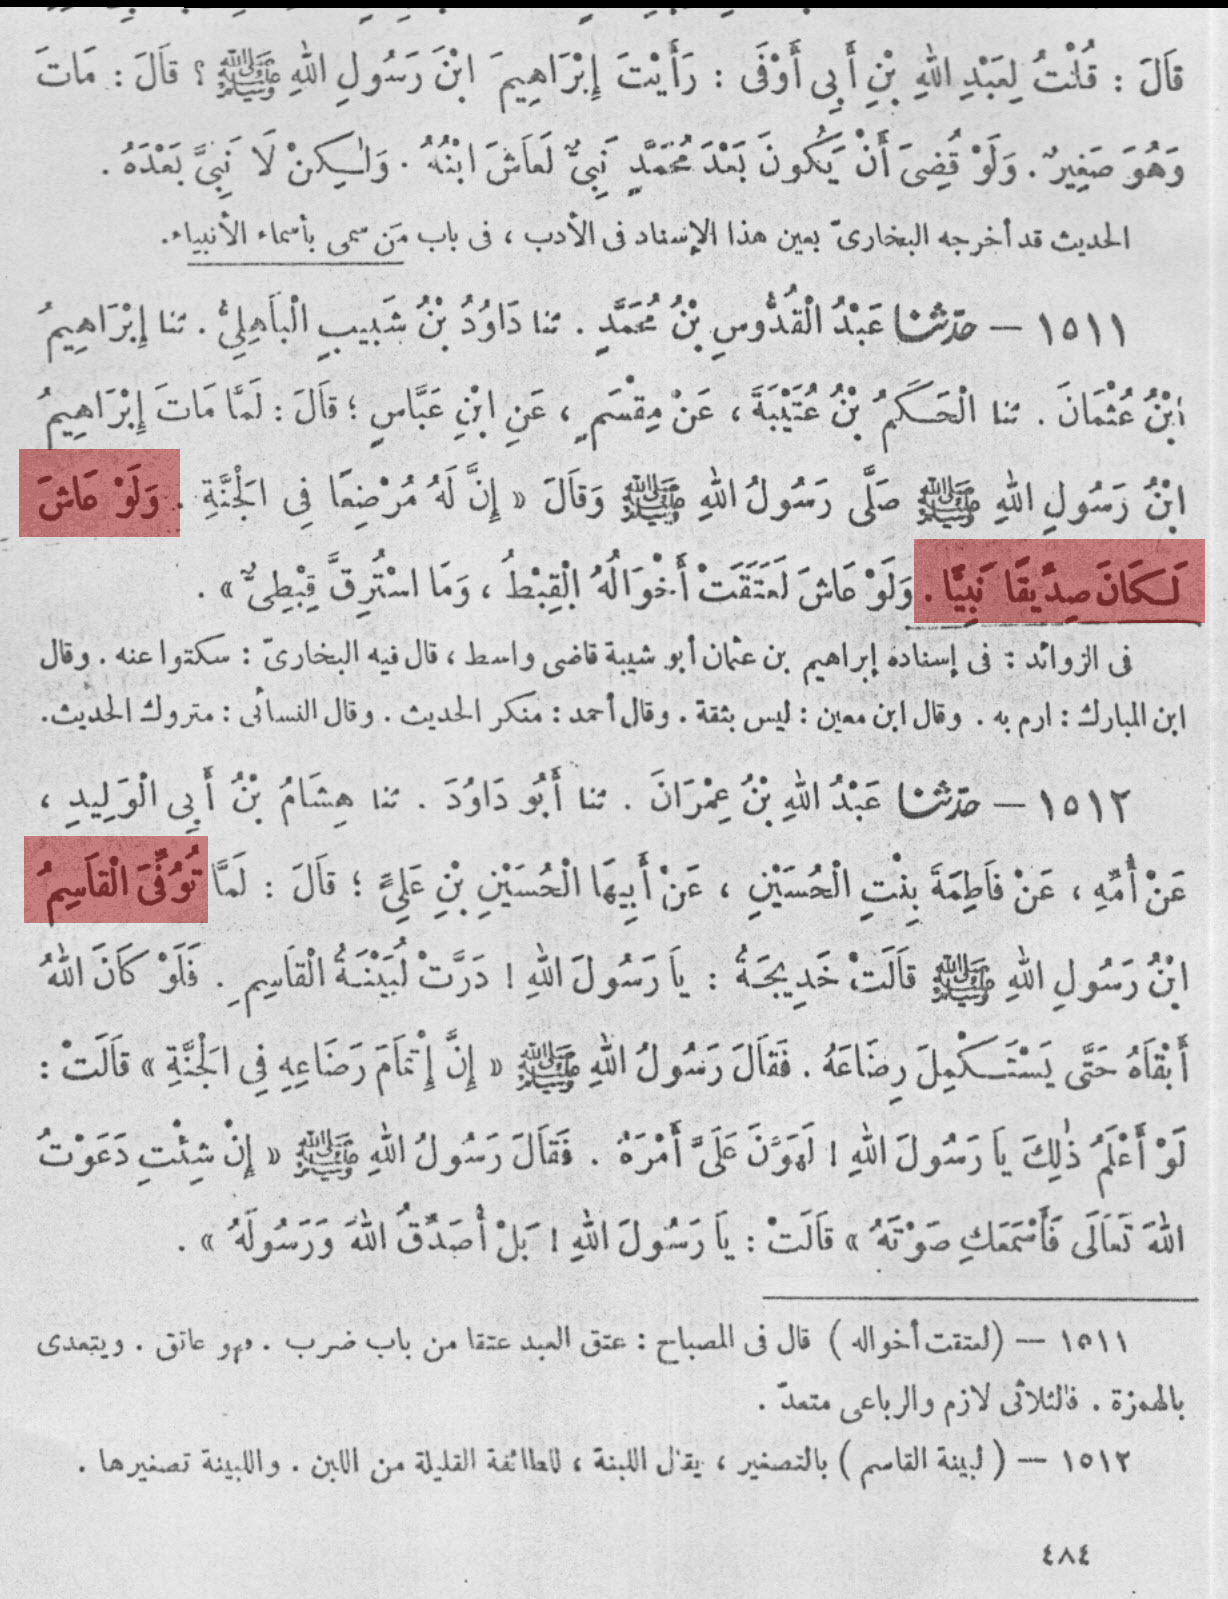 قَالَ : قُلْتُ لِعَبْدِ اللهِ بْنِ أَبِي أَوْفَى : رَأَيْتَ إِبْرَاهِيمَ ابْنَ رَسُولِ اللهِ ﷺ ؟ قَالَ : مَاتَ
وَهُوَ صَغِيرٌ . وَلَوْ قُضِىَ أَنْ يَكُونَ بَعْدَ مُحَمَّدٍ نَبِيٌّ لَعَاشَ ابْنُهُ . وَلٰكِنْ لَا نَبِيَّ بَعْدَهُ .
الحديث قد أخرجه البخارىّ بعين هذا الإسناد فى الأدب ، فى باب مَن سمى بأسماء الأنبياء.
١٥١١ — حدّثنا عَبْدُ الْقُدُّوسِ بْنُ مُحَمَّدٍ . ثنا دَاوُدُ بْنُ شَبِيبٍ الْبَاهِلِيُّ . ثنا إِبْرَاهِيمُ
ابْنُ عُثْمَانَ . ثنا الْحَكَمُ بْنُ عُتَيْبَةَ ، عَنْ مِقْسَمٍ ، عَنِ ابْنِ عَبَّاسٍ ؛ قَالَ : لَمَّا مَاتَ إِبْرَاهِيمُ
ابْنُ رَسُولِ اللهِ ﷺ صَلَّى رَسُولُ اللهِ ﷺ وَقَالَ « إِنَّ لَهُ مُرْضِعًا فِى الْجَنَّةِ . وَلَوْ عَاشَ
لَكَانَ صِدِّيقًا نَبِيًّا . وَلَوْ عَاشَ لَعَتَقَتْ أَخْوَالُهُ الْقِبْطُ ، وَمَا اسْتُرِقَّ قِبْطِىٌّ » .
فى الزوائد : فى إسناده إبراهيم بن عثمان أبو شيبة قاضى واسط ، قال فيه البخارىّ : سكتوا عنه . وقال
ابن المبارك : ارم به . وقال ابن معين : ليس بثقة . وقال أحمد : منكر الحديث . وقال النسائى : متروك الحديث.
١٥١٢ — حدّثنا عَبْدُ اللهِ بْنُ عِمْرَانَ . ثنا أَبُو دَاوُدَ . ثنا هِشَامُ بْنُ أَبِي الْوَلِيدِ ،
عَنْ أُمِّهِ ، عَنْ فَاطِمَةَ بِنْتِ الْحُسَيْنِ ، عَنْ أَبِيهَا الْحُسَيْنِ بْنِ عَلِيٍّ ؛ قَالَ : لَمَّا تُوُفِّىَ الْقَاسِمُ
ابْنُ رَسُولِ اللهِ ﷺ قَالَتْ خَدِيجَةُ : يَا رَسُولَ اللهِ ! دَرَّتْ لُبَيْنَةُ الْقَاسِمِ . فَلَوْ كَانَ اللهُ
أَبْقَاهُ حَتَّى يَسْتَكْمِلَ رِضَاعَهُ . فَقَالَ رَسُولُ اللهِ ﷺ « إِنَّ إِتْمَامَ رَضَاعِهِ فِى الْجَنَّةِ » قَالَتْ :
لَوْ أَعْلَمُ ذٰلِكَ يَا رَسُولَ اللهِ ! لَهَوَّنَ عَلَىَّ أَمْرَهُ . فَقَالَ رَسُولُ اللهِ ﷺ « إِنْ شِئْتِ دَعَوْتُ
اللهَ تَعَالَى فَأَسْمَعَكِ صَوْتَهُ » قَالَتْ : يَا رَسُولَ اللهِ ! بَلْ أُصَدِّقُ اللهَ وَرَسُولَهُ » .
١٥١١ — ( لعتقت أخواله ) قال فى المصباح : عتق العبد عتقا من باب ضرب . فهو عاتق . ويتعدى
بالهمزة . فالثلاثى لازم والرباعى متعدّ .
١٥١٢ — ( لبينة القاسم ) بالتصغير ، يقال اللبنة ، للطائفة القليلة من اللبن . واللبينة تصغيرها .
٤٨٤